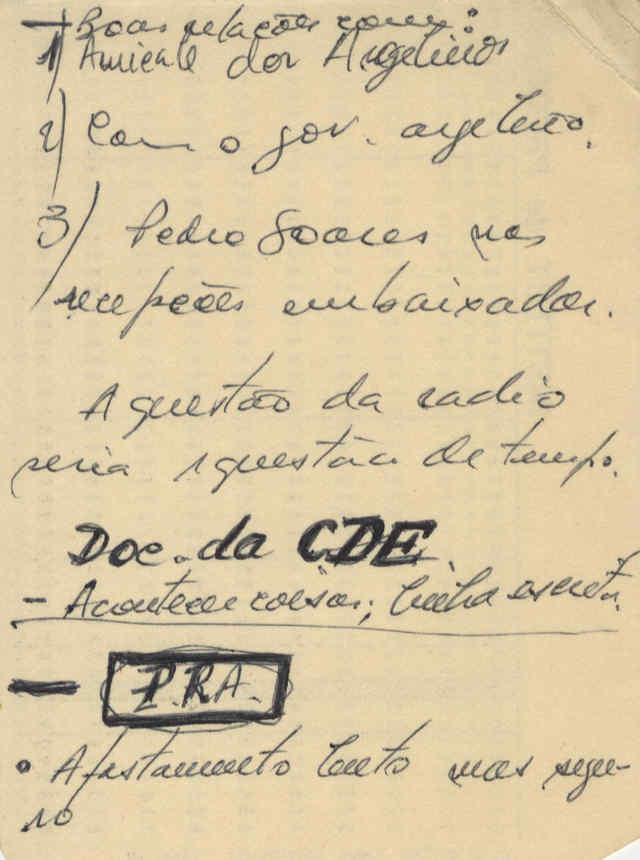 — Boas relações com:
1) Amicale dos Argelinos
2) Com o gov. argelino.
3) Pedro Soares nas
recepções embaixador.
A questão da radio
seria 1 questão de tempo.
Doc. da CDE
- Acontecer coisas; linha escrita
— P.R.A.
• Afastamento lento mas segu-
ro